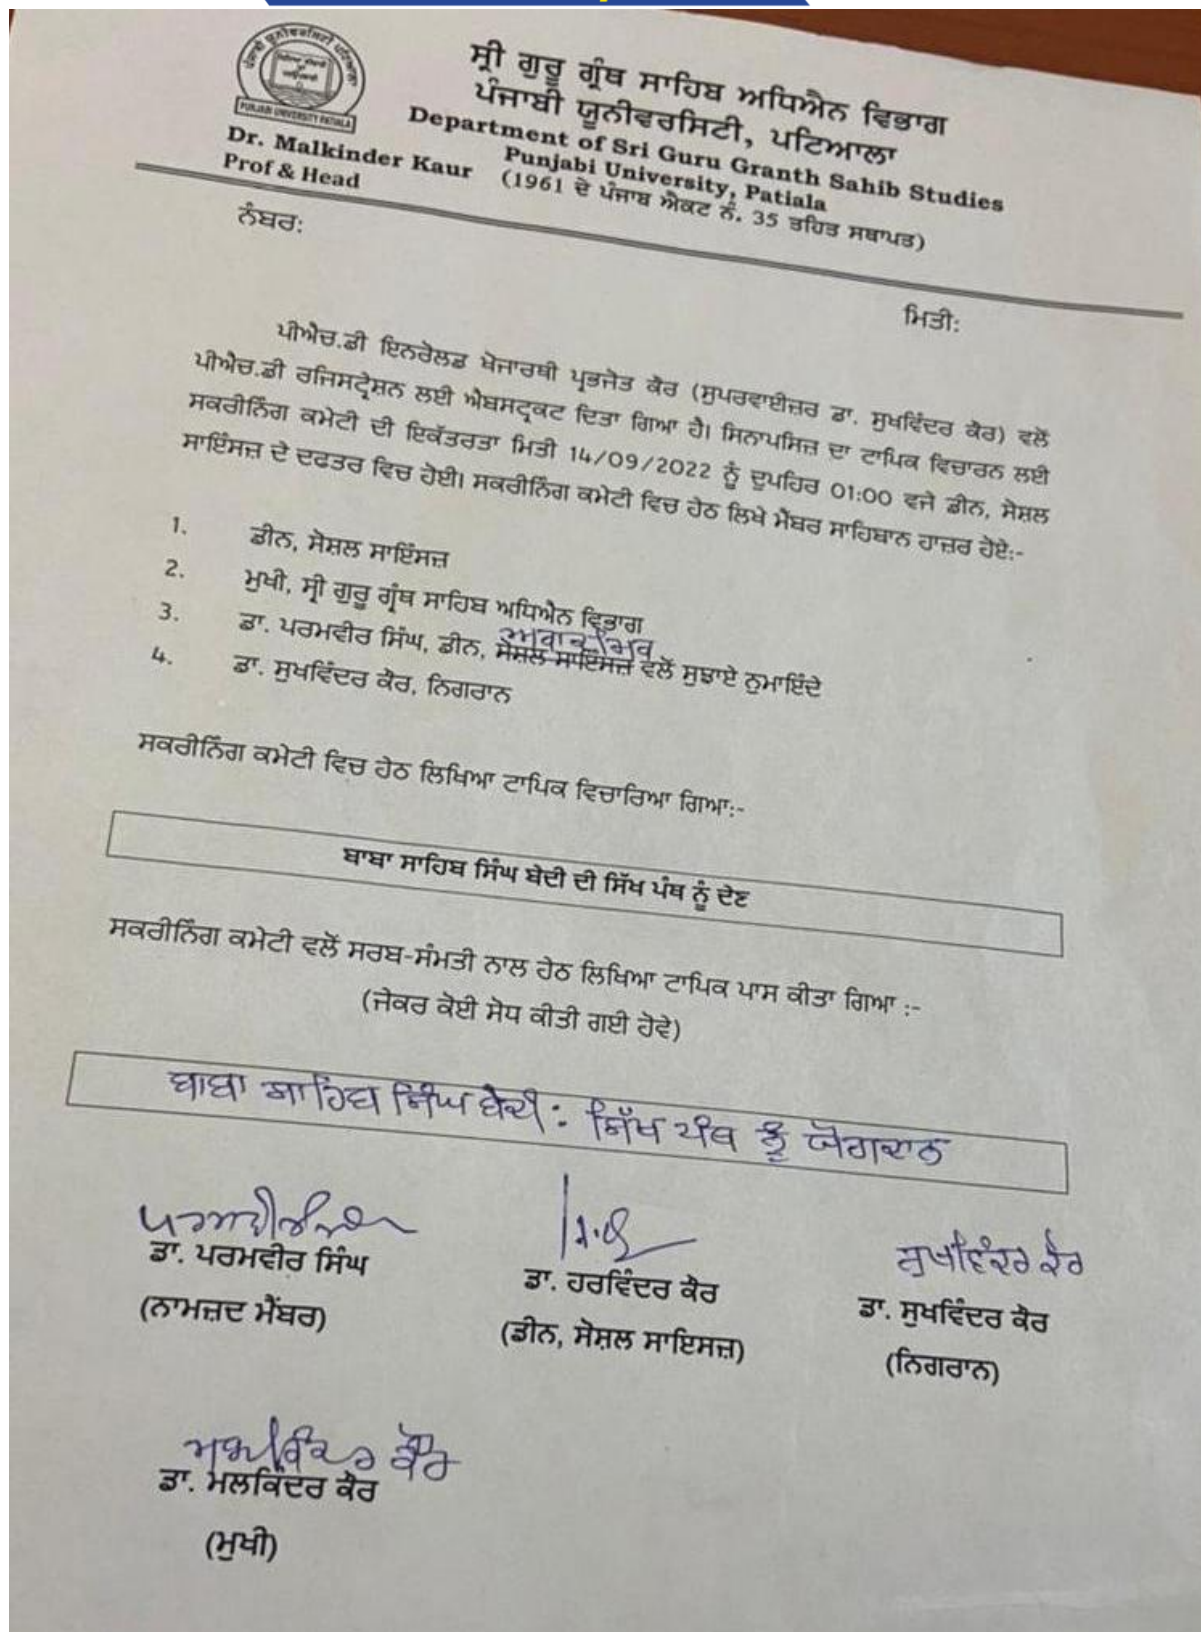 ਸ੍ਰੀ ਗੁਰੂ ਗ੍ਰੰਥ ਸਾਹਿਬ ਅਧਿਐਨ ਵਿਭਾਗ
ਪੰਜਾਬੀ ਯੂਨੀਵਰਸਿਟੀ, ਪਟਿਆਲਾ
Department of Sri Guru Granth Sahib Studies
Punjabi University, Patiala
(1961 ਦੇ ਪੰਜਾਬ ਐਕਟ ਨੰ. 35 ਤਹਿਤ ਸਥਾਪਤ)
ਪੰਜਾਬੀ ਯੂਨੀਵਰਸਿਟੀ ਪਟਿਆਲਾ
PUNJABI UNIVERSITY PATIALA
Dr. Malkinder Kaur
Prof & Head
ਨੰਬਰ:
ਮਿਤੀ:
ਪੀਐਚ.ਡੀ ਇਨਰੋਲਡ ਖੋਜਾਰਥੀ ਪ੍ਰਭਜੋਤ ਕੌਰ (ਸੁਪਰਵਾਈਜ਼ਰ ਡਾ. ਸੁਖਵਿੰਦਰ ਕੌਰ) ਵਲੋਂ
ਪੀਐਚ.ਡੀ ਰਜਿਸਟ੍ਰੇਸ਼ਨ ਲਈ ਐਬਸਟ੍ਰਕਟ ਦਿਤਾ ਗਿਆ ਹੈ। ਸਿਨਾਪਸਿਜ਼ ਦਾ ਟਾਪਿਕ ਵਿਚਾਰਨ ਲਈ
ਸਕਰੀਨਿੰਗ ਕਮੇਟੀ ਦੀ ਇਕੱਤਰਤਾ ਮਿਤੀ 14/09/2022 ਨੂੰ ਦੁਪਹਿਰ 01:00 ਵਜੇ ਡੀਨ, ਸੋਸ਼ਲ
ਸਾਇੰਸਜ਼ ਦੇ ਦਫਤਰ ਵਿਚ ਹੋਈ। ਸਕਰੀਨਿੰਗ ਕਮੇਟੀ ਵਿਚ ਹੇਠ ਲਿਖੇ ਮੈਂਬਰ ਸਾਹਿਬਾਨ ਹਾਜ਼ਰ ਹੋਏ:-
1. ਡੀਨ, ਸੋਸ਼ਲ ਸਾਇੰਸਜ਼
2. ਮੁਖੀ, ਸ੍ਰੀ ਗੁਰੂ ਗ੍ਰੰਥ ਸਾਹਿਬ ਅਧਿਐਨ ਵਿਭਾਗ
3. ਡਾ. ਪਰਮਵੀਰ ਸਿੰਘ, ਡੀਨ, ਸੋਸ਼ਲ ਸਾਇੰਸਜ਼ ਵਲੋਂ ਸੁਝਾਏ ਨੁਮਾਇੰਦੇ
4. ਡਾ. ਸੁਖਵਿੰਦਰ ਕੌਰ, ਨਿਗਰਾਨ
ਸਕਰੀਨਿੰਗ ਕਮੇਟੀ ਵਿਚ ਹੇਠ ਲਿਖਿਆ ਟਾਪਿਕ ਵਿਚਾਰਿਆ ਗਿਆ:-
ਬਾਬਾ ਸਾਹਿਬ ਸਿੰਘ ਬੇਦੀ ਦੀ ਸਿੱਖ ਪੰਥ ਨੂੰ ਦੇਣ
ਸਕਰੀਨਿੰਗ ਕਮੇਟੀ ਵਲੋਂ ਸਰਬ-ਸੰਮਤੀ ਨਾਲ ਹੇਠ ਲਿਖਿਆ ਟਾਪਿਕ ਪਾਸ ਕੀਤਾ ਗਿਆ :-
(ਜੇਕਰ ਕੋਈ ਸੋਧ ਕੀਤੀ ਗਈ ਹੋਵੇ)
ਬਾਬਾ ਸਾਹਿਬ ਸਿੰਘ ਬੇਦੀ: ਸਿੱਖ ਪੰਥ ਨੂੰ ਯੋਗਦਾਨ
ਪਰਮਵੀਰ ਸਿੰਘ
ਸੁਖਵਿੰਦਰ ਕੌਰ
ਡਾ. ਪਰਮਵੀਰ ਸਿੰਘ
ਡਾ. ਹਰਵਿੰਦਰ ਕੌਰ
ਡਾ. ਸੁਖਵਿੰਦਰ ਕੌਰ
(ਨਾਮਜ਼ਦ ਮੈਂਬਰ)
(ਡੀਨ, ਸੋਸ਼ਲ ਸਾਇਸਜ਼)
(ਨਿਗਰਾਨ)
ਮਲਕਿੰਦਰ ਕੌਰ
ਡਾ. ਮਲਕਿੰਦਰ ਕੌਰ
(ਮੁਖੀ)